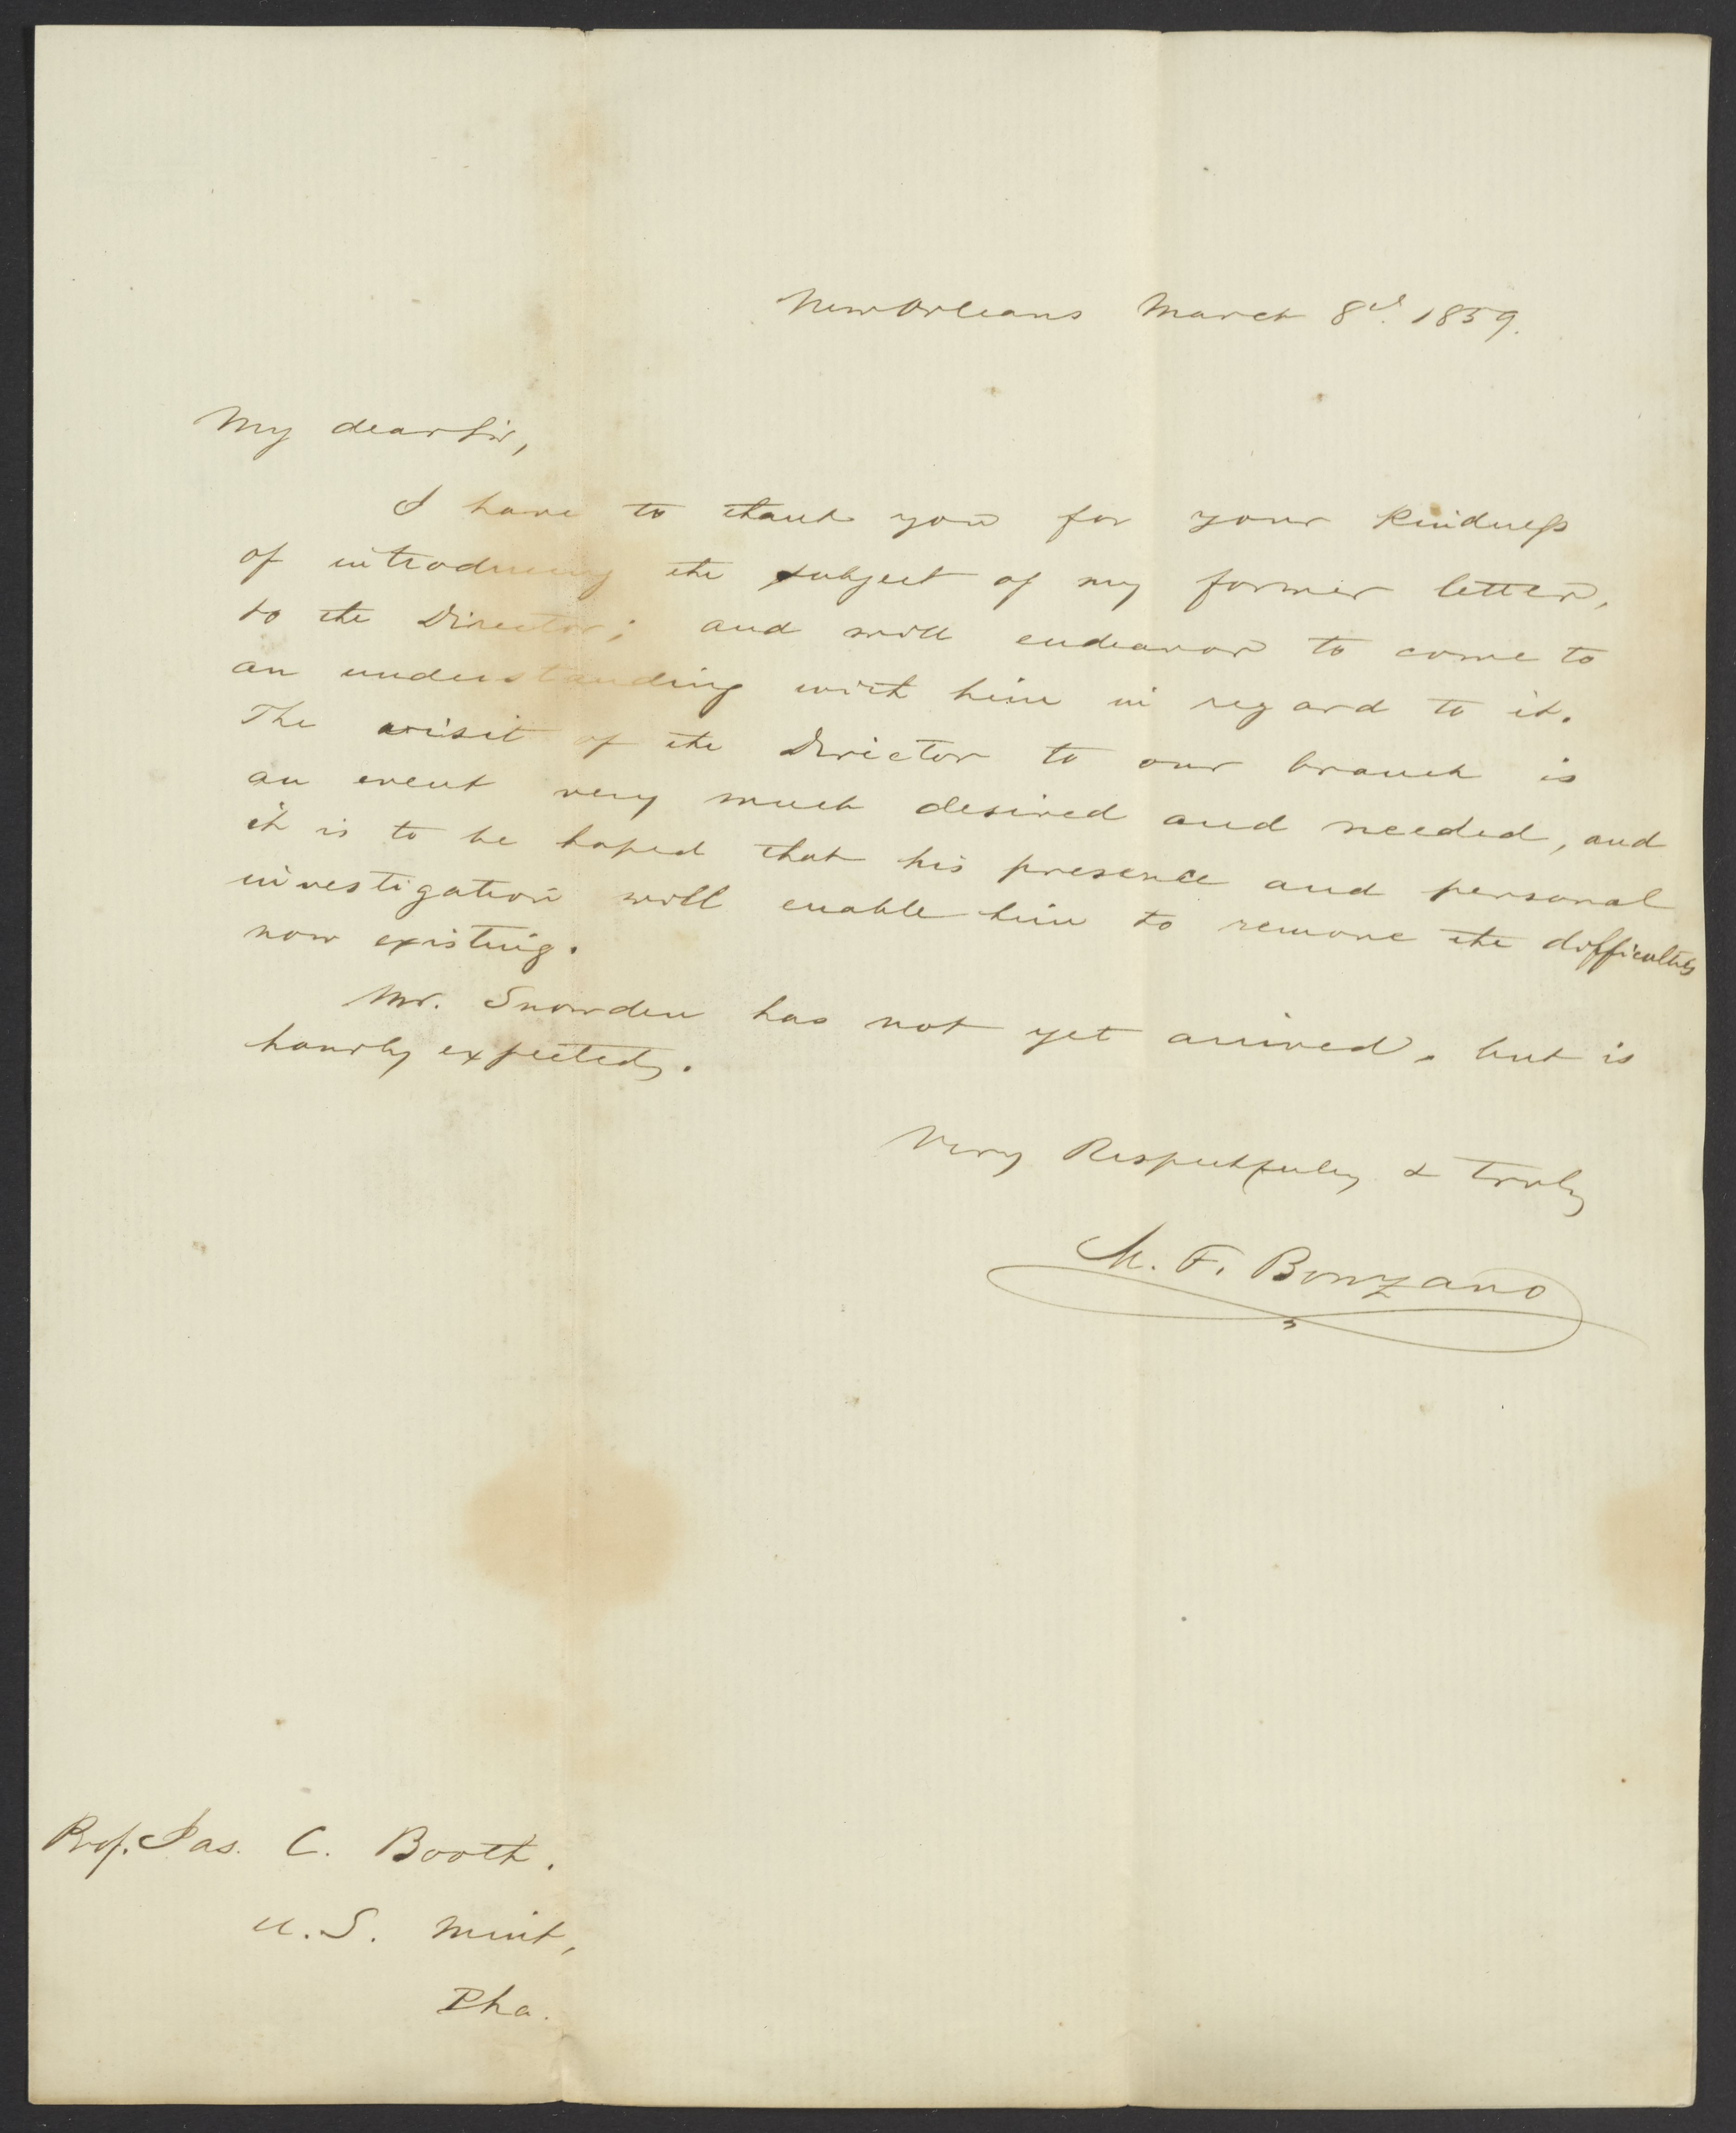 New Orleans March 8th. 1859.
My dear Sir,
I have to thank you for your kindness
of introducing the subject of my former letter,
to the Director; and will endeavor to come to
an understanding with him in regard to it.
The visit of the Director to our branch is
an event very much desired and needed, and
it is to be hoped that his presence and personal
investigation will enable him to remove the difficulties
now existing.
Mr. Snowden has not yet arrived, but is
hourly expected.
Very Respectfully & Truly
M. F. Bonzano
Prof. Jas. C. Booth.
U.S. Mint,
Pha.